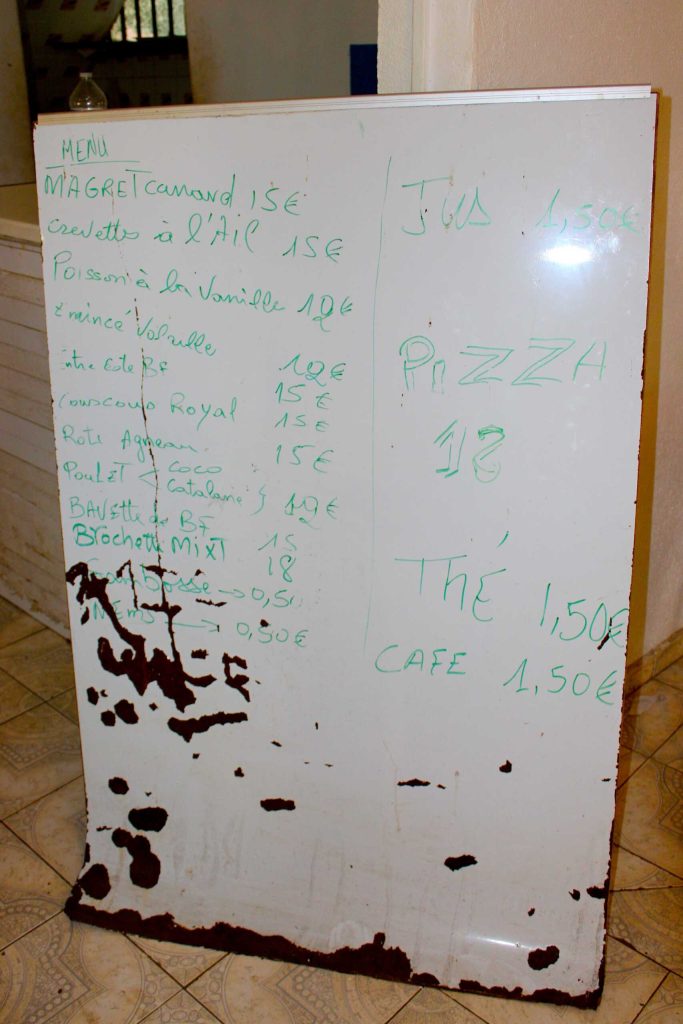 MENU
MAGRET canard 15€
crevettes à l'Ail 15€
Poisson à la Vanille 12€
Emincé Volaille 12€
Entre Cote BF 15€
Couscous Royal 15€
Roti Agneau 15€
Poulet < coco
Catalane } 12€
BAVette de BF 15
Brochette MiXT 18
Samboosse → 0,50
NEMS → 0,50€
Jus 1,50€
PiZZA
18
THÉ 1,50€
CAFE 1,50€